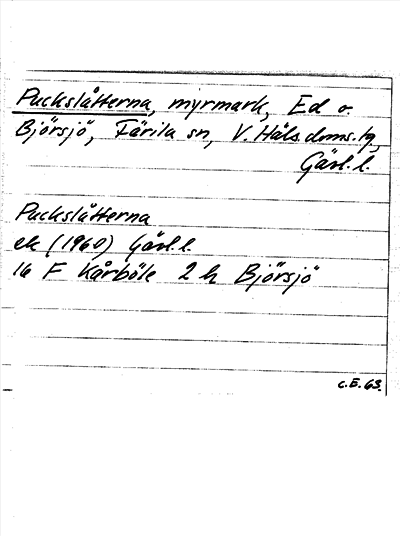 Puckslåtterna, myrmark, Ed o.
Björsjö, Färila sn, V. Häls. doms. tg,
Gävl. l.
Puckslåtterna
ek (1960) Gävl. l.
16 F Kårböle 2 h Björsjö
C.E. 63.